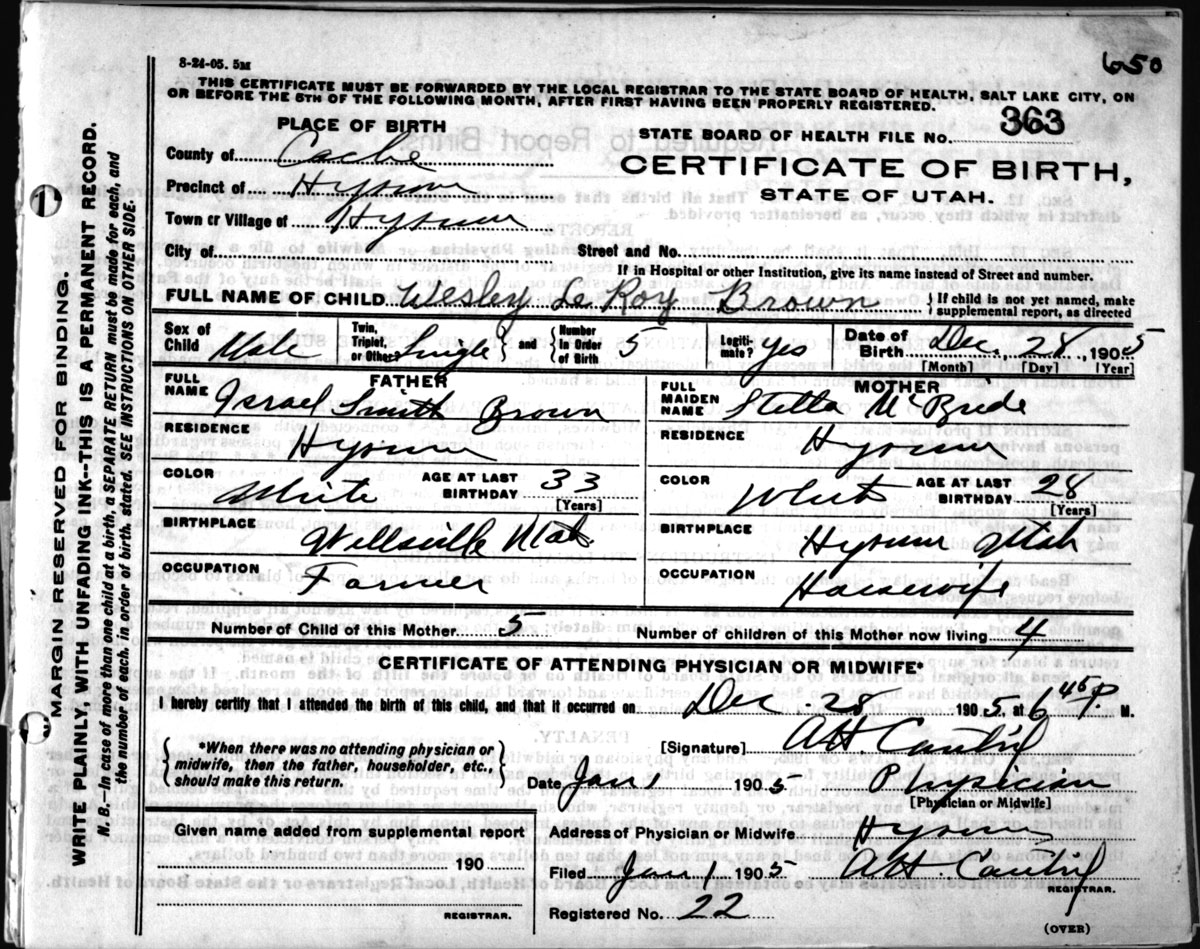 650
8-24-05. 5M
THIS CERTIFICATE MUST BE FORWARDED BY THE LOCAL REGISTRAR TO THE STATE BOARD OF HEALTH, SALT LAKE CITY, ON
OR BEFORE THE 5TH OF THE FOLLOWING MONTH, AFTER FIRST HAVING BEEN PROPERLY REGISTERED.
PLACE OF BIRTH
STATE BOARD OF HEALTH FILE NO. 363
County of Cache
CERTIFICATE OF BIRTH,
Precinct of Hyrum
STATE OF UTAH.
Town or Village of Hyrum
City of Street and No.
If in Hospital or other Institution, give its name instead of Street and number.
FULL NAME OF CHILD Wesley Le Roy Brown { If child is not yet named, make supplemental report, as directed
Sex of Child Male Twin, Triplet, or Other Single and { Number in Order of Birth 5 Legitimate? Yes Date of Birth Dec., 28, 1905
[Month] [Day] [Year]
FATHER MOTHER
FULL NAME Israel Smith Brown FULL MAIDEN NAME Stella McBride
RESIDENCE Hyrum RESIDENCE Hyrum
COLOR White AGE AT LAST BIRTHDAY 33 [Years] COLOR White AGE AT LAST BIRTHDAY 28 [Years]
BIRTHPLACE Wellsville Utah BIRTHPLACE Hyrum Utah
OCCUPATION Farmer OCCUPATION Housewife
Number of Child of this Mother 5 Number of children of this Mother now living 4
CERTIFICATE OF ATTENDING PHYSICIAN OR MIDWIFE*
I hereby certify that I attended the birth of this child, and that it occurred on Dec. 28 1905, at 6 45 P. M.
{ *When there was no attending physician or midwife, then the father, householder, etc., should make this return. }
[Signature] A H. Cantril
Date Jan 1 1905 Physician
[Physician or Midwife]
Given name added from supplemental report
Address of Physician or Midwife Hyrum
190
Filed Jan 1 1905 A H. Cantril
REGISTRAR.
REGISTRAR.
Registered No. 22
(OVER)
MARGIN RESERVED FOR BINDING.
WRITE PLAINLY WITH UNFADING INK--THIS IS A PERMANENT RECORD.
N. B.--In case of more than one child at a birth, a SEPARATE RETURN must be made for each, and
the number of each, in order of birth, stated. SEE INSTRUCTIONS ON OTHER SIDE.